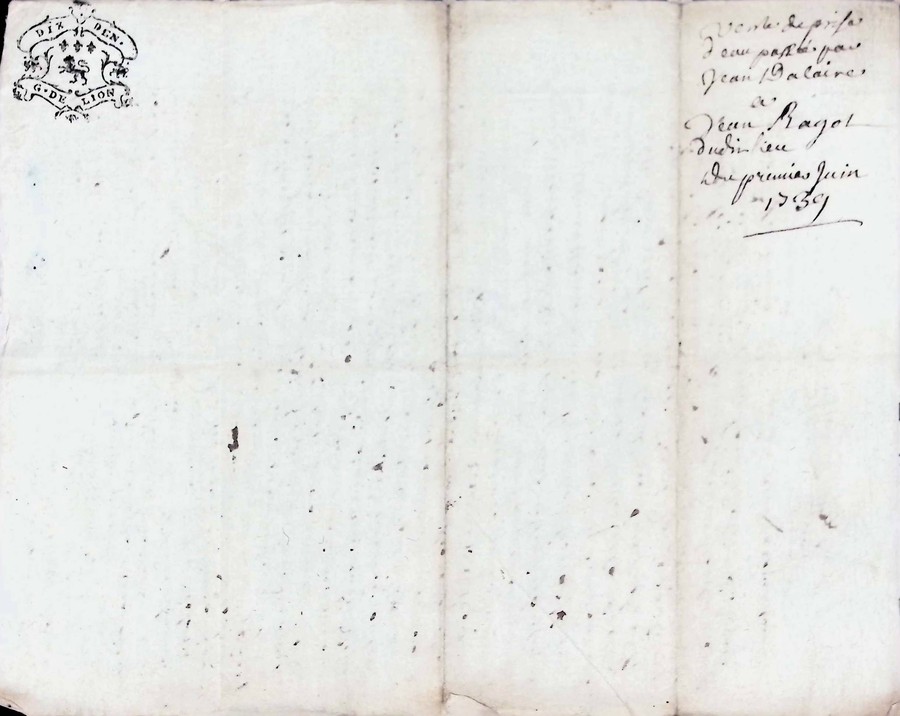 DIX DEN.
G. DE LION
Vente de prise
d'eau passée par
Jean Dalaire
a
Jean Ragot
dudit lieu
du premier Juin
1739